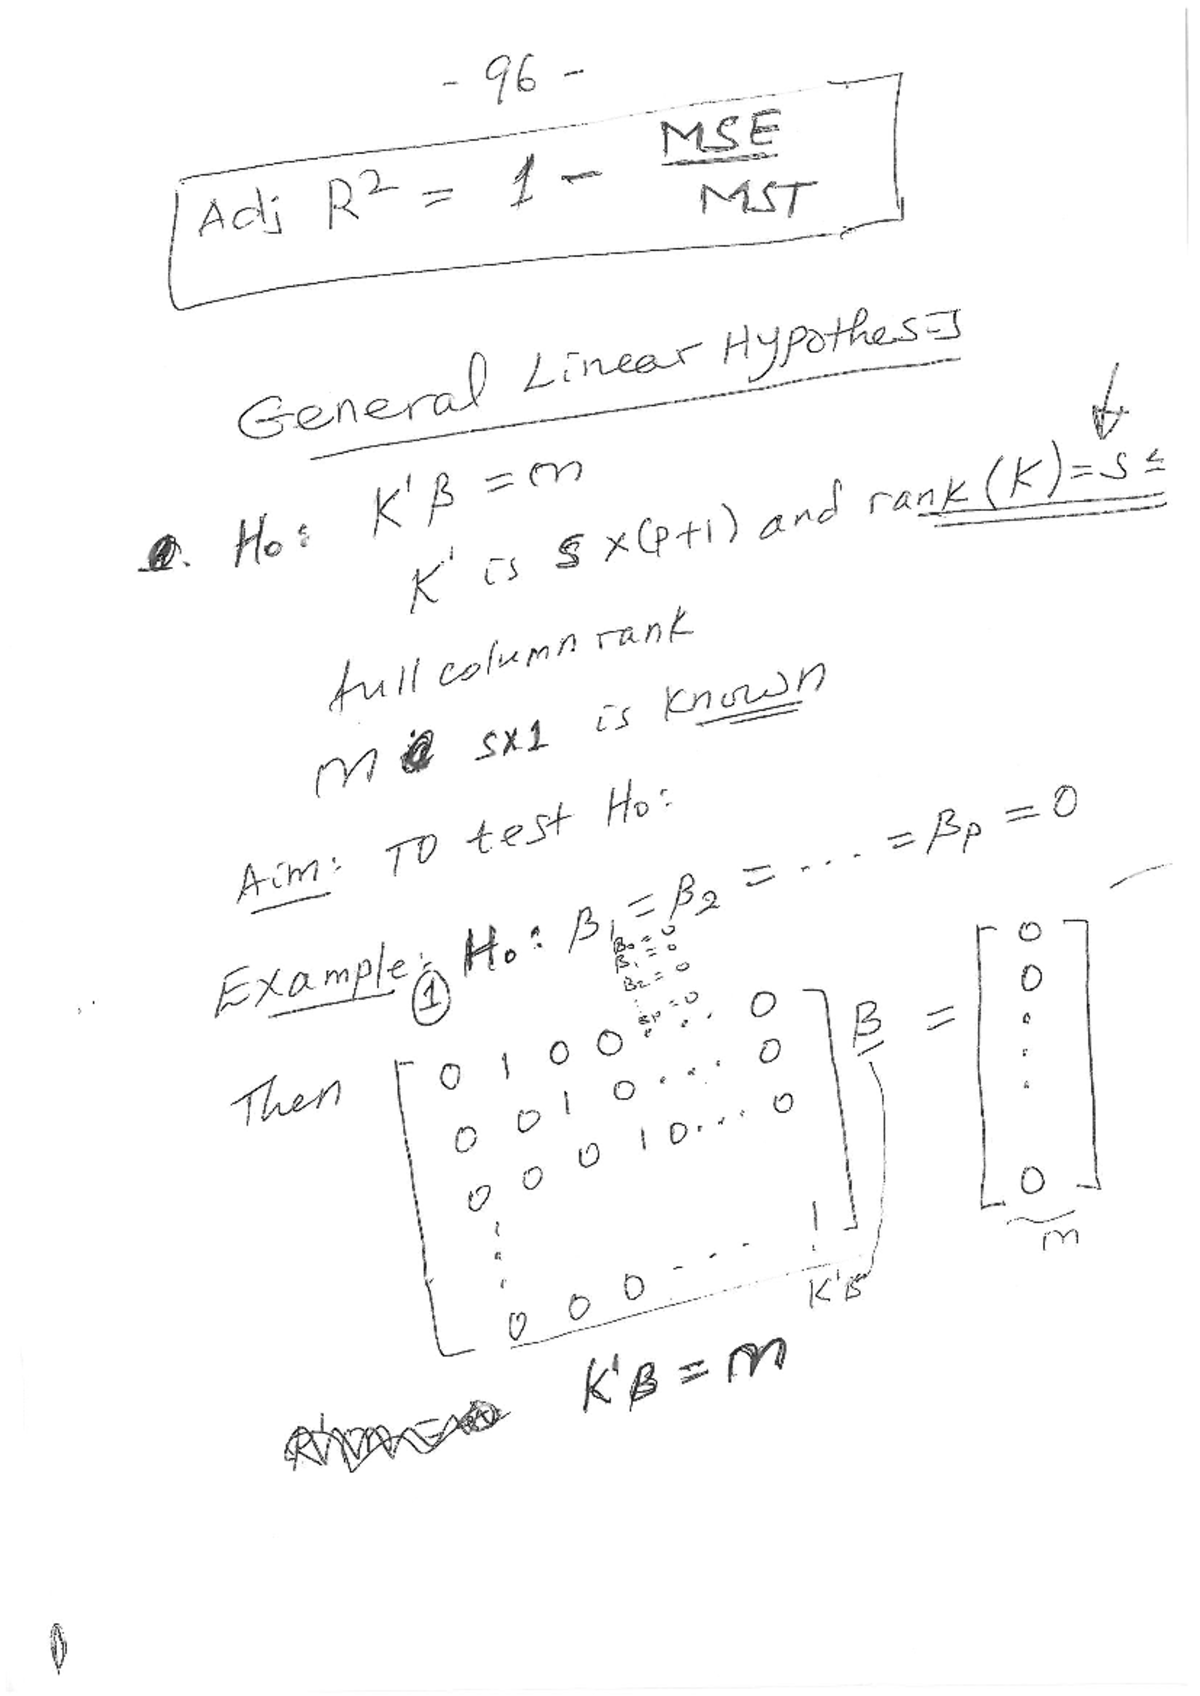 - 96 -
Adj R² = 1 - MSE / MST
General Linear Hypothesis
H₀: K'β = m
K' is s x (p+1) and rank (K) = s ≤
full column rank
m s x 1 is known
Aim: To test H₀:
Example: ① H₀: β₁ = β₂ = .... = βp = 0
β₀ = 0
β₁ = 0
β₂ = 0
⋮
βp = 0
Then [ 0 1 0 0 ... 0 ] β = [ 0 ]
0 0 1 0 .... 0 0
0 0 0 1 0 ... 0 ⋮
⋮ 1 0
0 0 0 ....
m
K'β
K'β = m